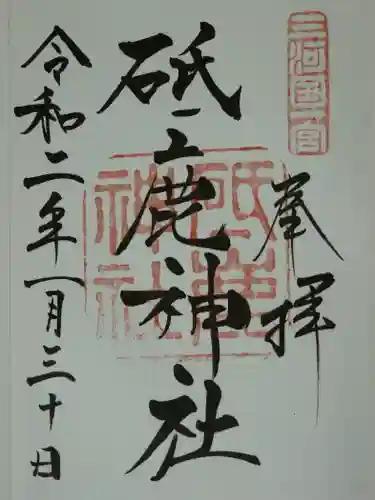 三河國一宮
奉拝
砥鹿神社
砥鹿神社
令和二年一月三十日